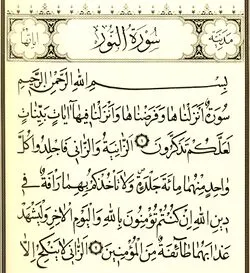 مدنية سُورَةُ النُّورِ آياتها
بِسْمِ اللهِ الرَّحْمٰنِ الرَّحِيمِ
سُورَةٌ اَنْزَلْنَاهَا وَفَرَضْنَاهَا وَاَنْزَلْنَا فِيهَا آيَاتٍ بَيِّنَاتٍ
لَعَلَّكُمْ تَذَكَّرُونَ ۝ اَلزَّانِيَةُ وَالزَّانِي فَاجْلِدُوا كُلَّ
وَاحِدٍ مِنْهُمَا مِائَةَ جَلْدَةٍ وَلَا تَأْخُذْكُمْ بِهِمَا رَأْفَةٌ فِي
دِينِ اللهِ اِنْ كُنْتُمْ تُؤْمِنُونَ بِاللهِ وَالْيَوْمِ الْآخِرِ وَلْيَشْهَدْ
عَذَابَهُمَا طَائِفَةٌ مِنَ الْمُؤْمِنِينَ ۝ اَلزَّانِي لَا يَنْكِحُ اِلَّا